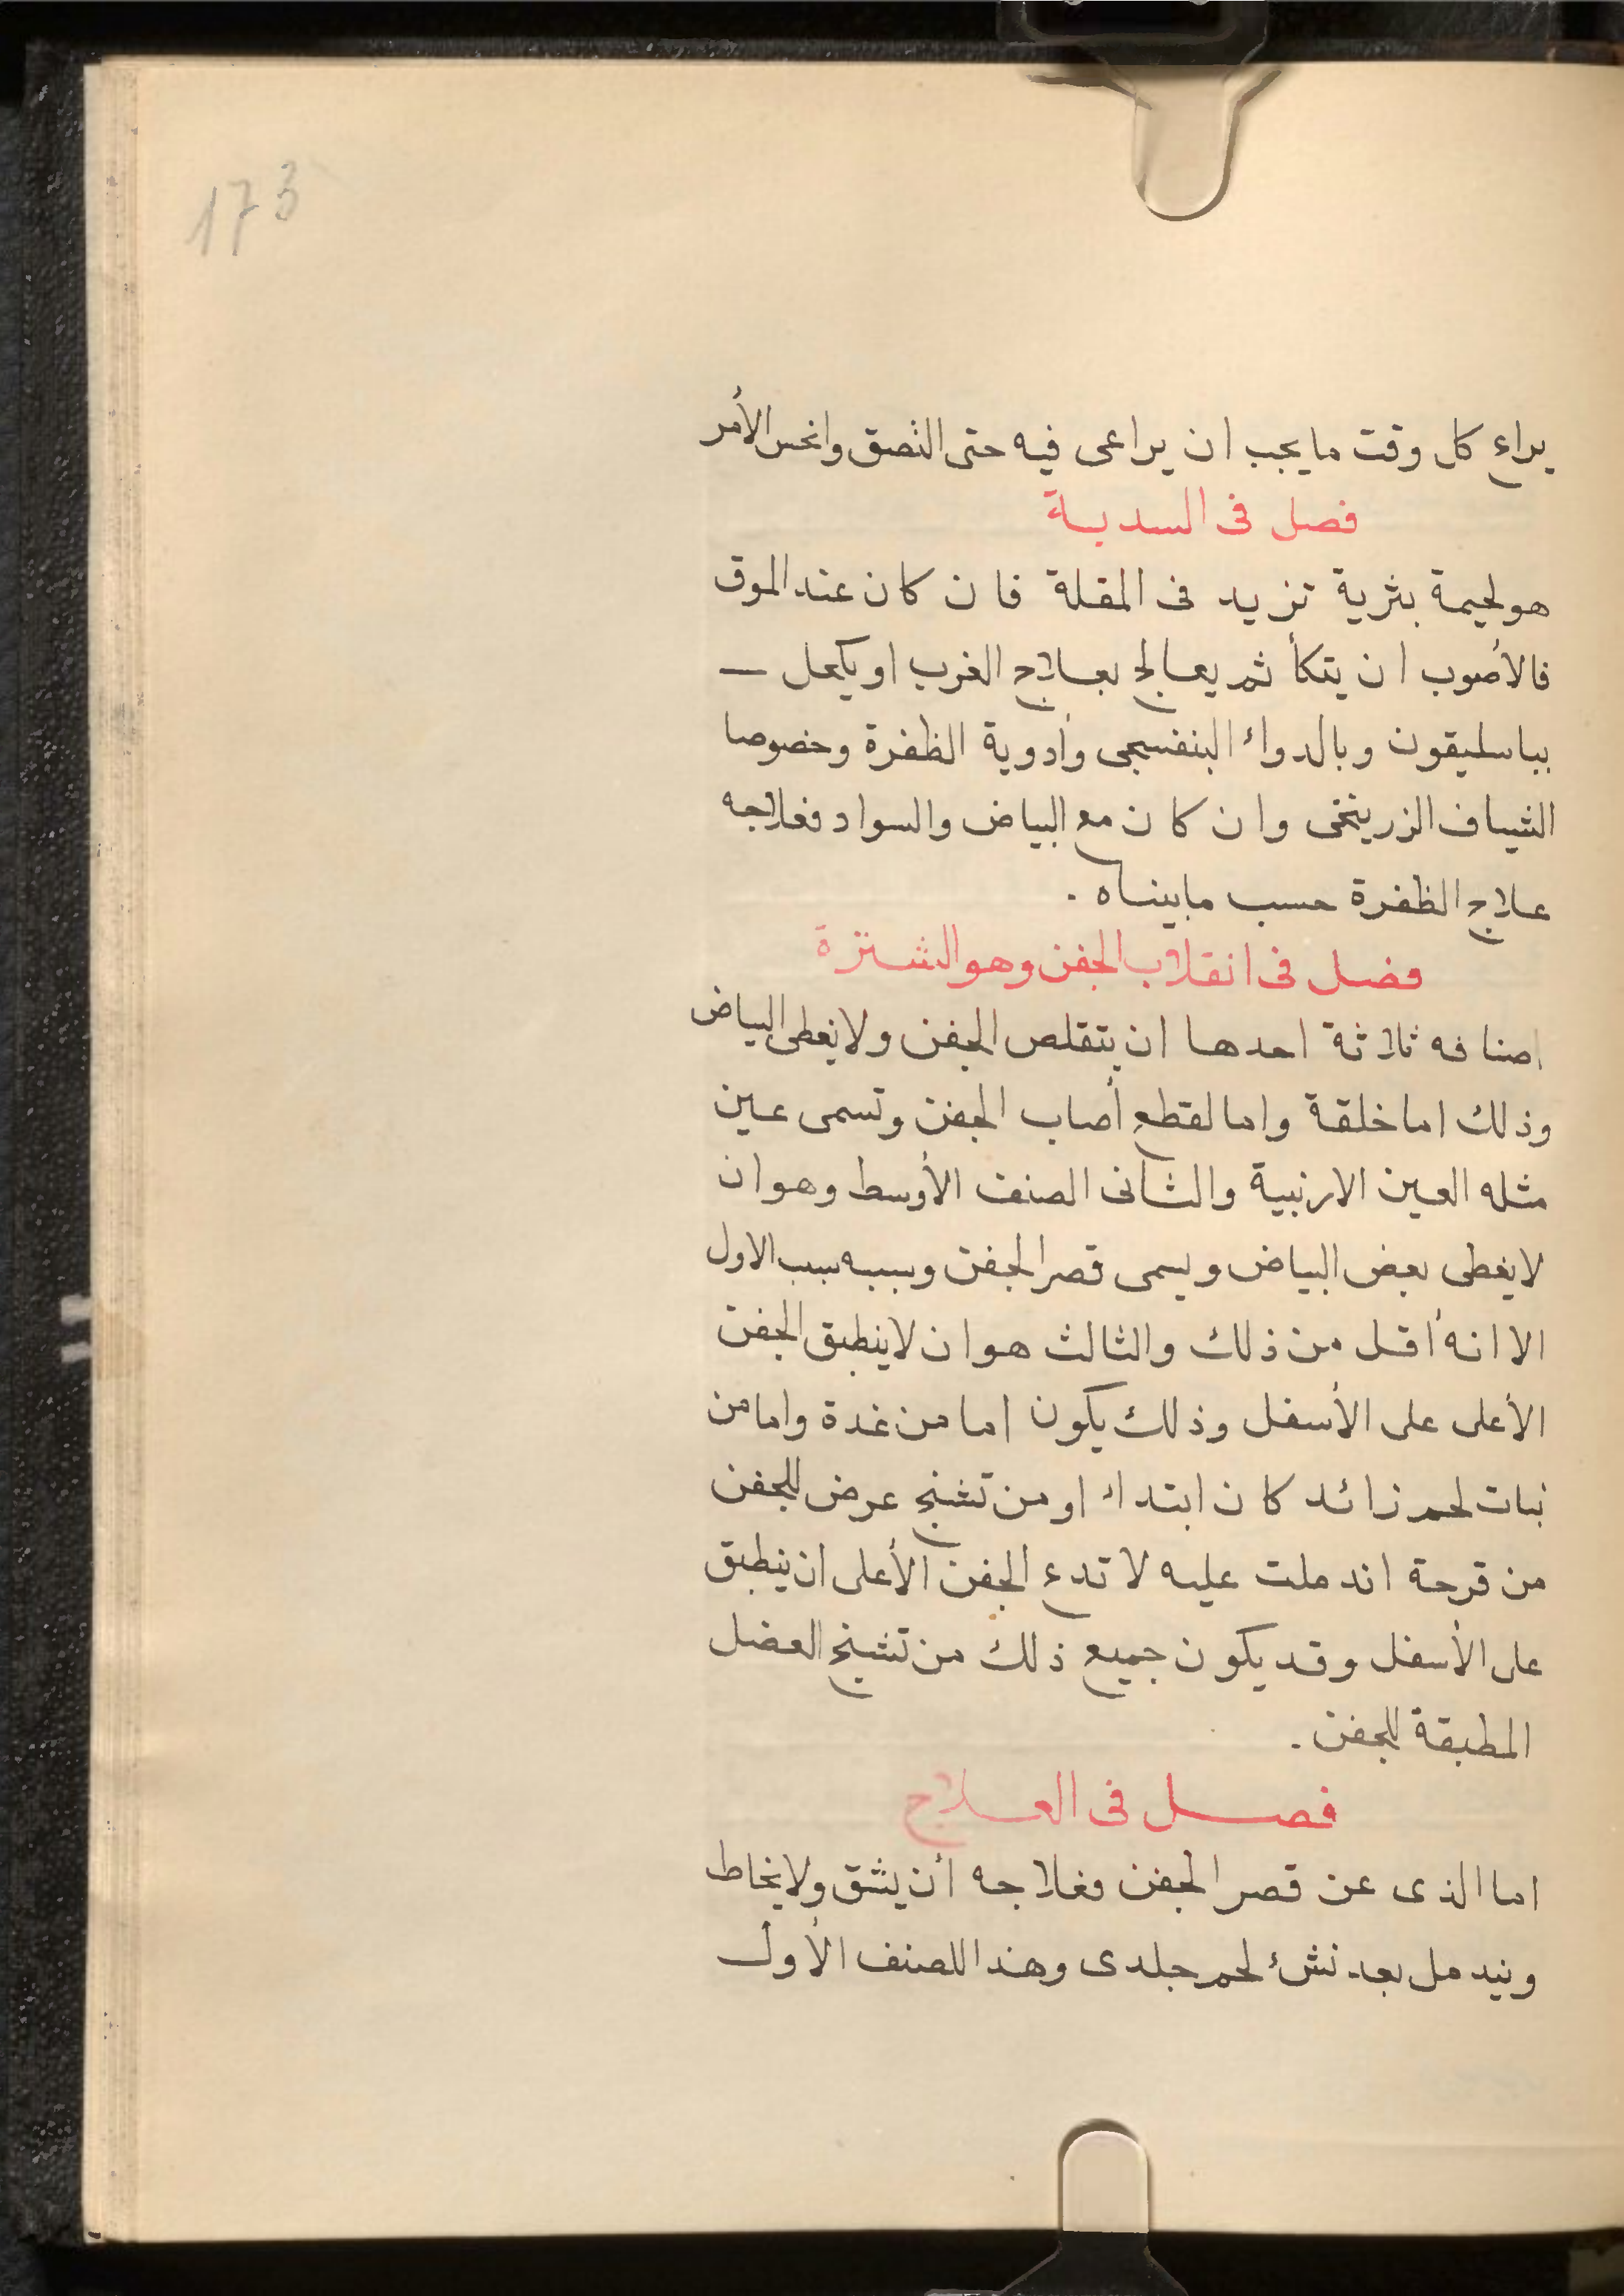 173
يراع كل وقت ما يجب ان يراعى فيه حتى التصق وانحس الأمر
فصل فى السدية
هو لحيمة بثرية تزيد فى المقلة فان كان عند الموق
فالأصوب ان يتكأ ثم يعالج بعلاج الغرب او يكحل
بباسليقون وبالدواء البنفسجى وأدوية الظفرة وخصوصا
الشياف الزرينخى وان كان مع البياض والسواد فعلاجه
علاج الظفرة حسب مابيناه .
فصل فى انقلاب الجفن وهو الشترة
اصنافه ثلاثة احدها ان يتقلص الجفن ولا يغطى البياض
وذلك اما خلقة واما لقطع أصاب الجفن وتسمى عين
مثله العين الارنبية والثانى الصنف الأوسط وهو ان
لا يغطى بعض البياض ويسمى قصر الجفن وسببه سبب الاول
الا انه أقل من ذلك والثالث هو ان لا ينطبق الجفن
الأعلى على الأسفل وذلك يكون اما من غدة واما من
نبات لحم زائد كان ابتداء او من تشنج عرض للجفن
من قرحة اندملت عليه لا تدع الجفن الأعلى ان ينطبق
على الأسفل وقد يكون جميع ذلك من تشنج العضل
المطبقة للجفن .
فصل فى العلاج
اما الذى عن قصر الجفن فعلاجه أن يشق ولا يخاط
ويندمل بعد نشئ لحم جلدى وهذا للصنف الأول